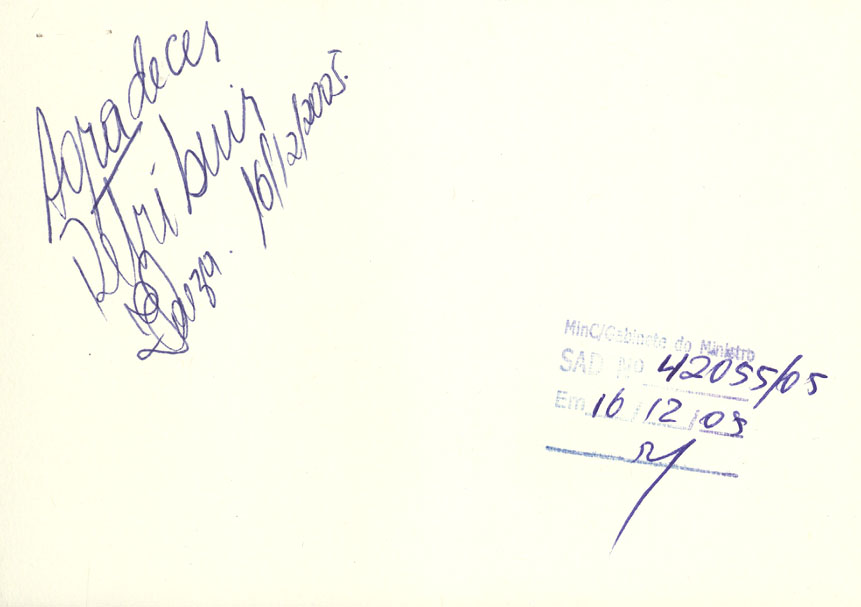 Agradecer
Retribuir
16/12/2005.
MinC/Gabinete do Ministro
SAD Nº 42055/05
Em 16/12/05